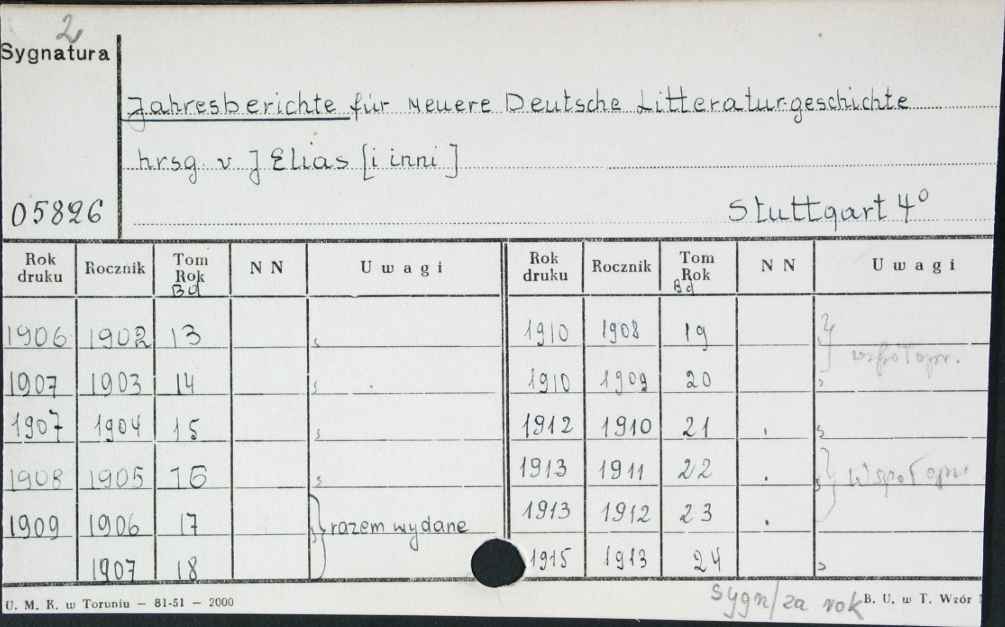 2
Sygnatura
Jahresberichte für Neuere Deutsche Litteraturgeschichte
hrsg. v J Elias [i inni]
05826
Stuttgart 4°
Rok druku Rocznik Tom Rok Bd NN Uwagi Rok druku Rocznik Tom Rok Bd NN Uwagi
1906 1902 13 1910 1908 19
współopr.
1907 1903 14 1910 1909 20
1907 1904 15 1912 1910 21
1908 1905 16 1913 1911 22 współopr.
1909 1906 17 razem wydane 1913 1912 23
1907 18 1915 1913 24
U. M. K. w Toruniu — 81-51 — 2000
sygn/za rok
B. U. w T. Wzór